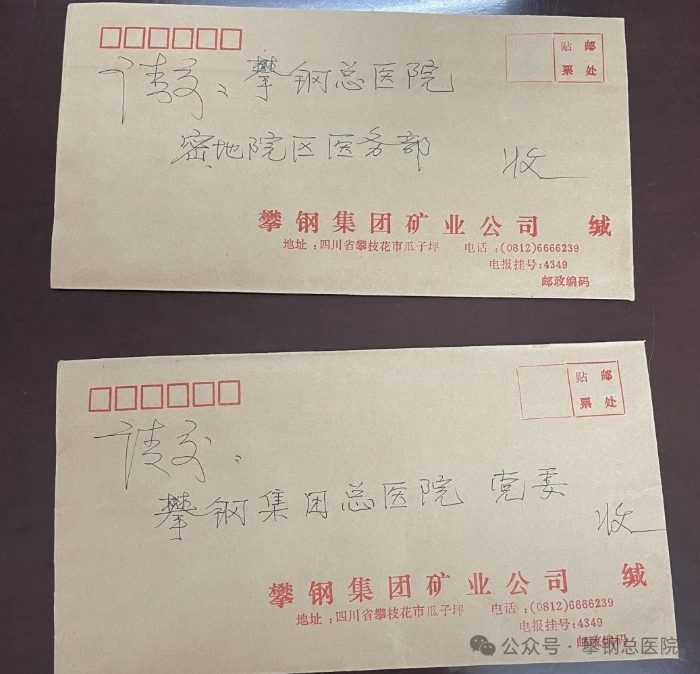 贴 邮
票 处
请交：攀钢总医院
密地院区医务部 收
攀钢集团矿业公司 缄
地址：四川省攀枝花市瓜子坪 电话：(0812)6666239
电报挂号:4349
邮政编码
贴 邮
票 处
请交：
攀钢集团总医院 党委
收
攀钢集团矿业公司 缄
地址：四川省攀枝花市瓜子坪 电话：(0812)6666239
电报挂号:4349
邮政编码
公众号·攀钢总医院